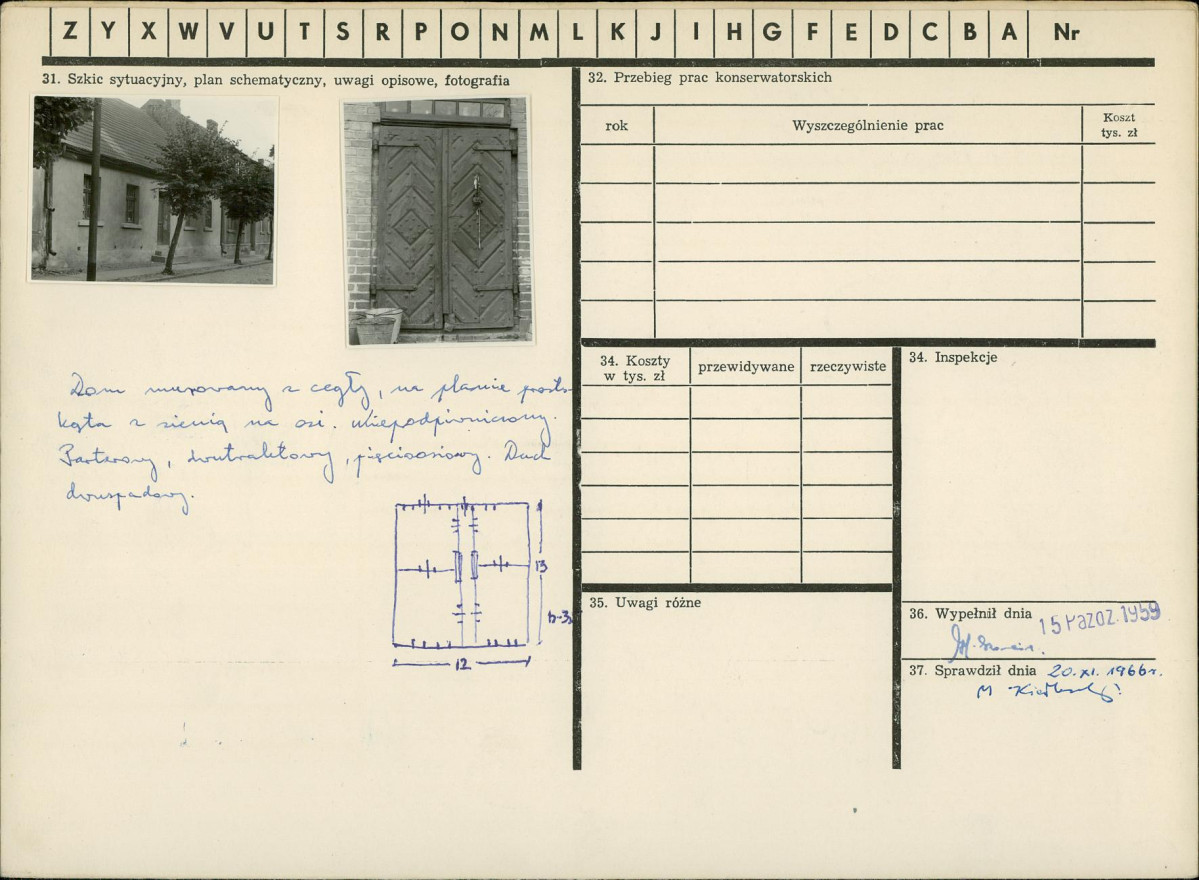 Z Y X W V U T S R P O N M L K J I H G F E D C B A Nr
31. Szkic sytuacyjny, plan schematyczny, uwagi opisowe, fotografia
Dom murowany z cegły, na planie prosto-
kąta z sienią na osi. Niepodpiwniczony.
Parterowy, dwutraktowy, pięcioosiowy. Dach
dwuspadowy.
13
h-3
12
32. Przebieg prac konserwatorskich
rok
Wyszczególnienie prac
Koszt
tys. zł
34. Koszty
w tys. zł
przewidywane
rzeczywiste
34. Inspekcje
35. Uwagi różne
36. Wypełnił dnia 15 PAZDZ. 1959
37. Sprawdził dnia 20.XI.1966r.